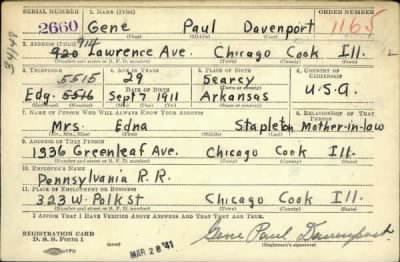 SERIAL NUMBER 1. NAME (Print) ORDER NUMBER
2660 Gene Paul Davenport 1165
(First) (Middle) (Last)
34/48
2. ADDRESS (Print) 914
920 Lawrence Ave. Chicago Cook Ill.
(Number and street) (Town) (County) (State)
3. TELEPHONE 4. AGE IN YEARS 5. PLACE OF BIRTH 6. COUNTRY OF CITIZENSHIP
5515 29 Searcy
DATE OF BIRTH U.S.A
Edg. 5576 Sept 7 1911 Arkansas
(Exchange) (Number) (Mo.) (Day) (Yr.) (State or country)
7. NAME OF PERSON WHO WILL ALWAYS KNOW YOUR ADDRESS 8. RELATIONSHIP OF THAT PERSON
Mrs. Edna Stapleton Mother-in-law
(Mr., Mrs., Miss) (First) (Middle) (Last)
9. ADDRESS OF THAT PERSON
1336 Greenleaf Ave. Chicago Cook Ill.
(Number and street) (Town) (County) (State)
10. EMPLOYER'S NAME
Pennsylvania R.R.
11. PLACE OF EMPLOYMENT OR BUSINESS
323 W. Polk st Chicago Cook Ill.
(Number and street) (Town) (County) (State)
I AFFIRM THAT I HAVE VERIFIED ABOVE ANSWERS AND THAT THEY ARE TRUE.
REGISTRATION CARD
D. S. S. Form 1
MAR 28 '41
Gene Paul Davenport
(Registrant's signature)